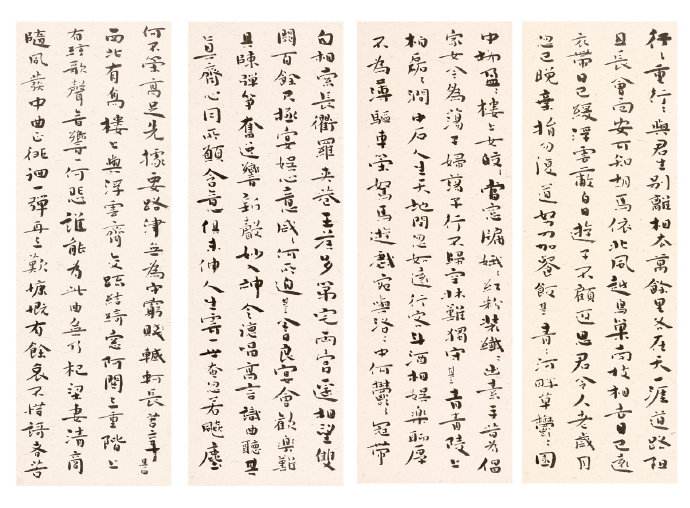 行々重行々與君生別離相去萬餘里各在天一涯道路阻
且長會面安可知胡馬依北風越鳥巢南枝相去日已遠
衣帶日已緩浮雲蔽白日遊子不顧返思君令人老歲月
忽已晚棄捐勿復道努力加餐飯其一青々河畔草鬱々園
中柳盈々樓上女皎々當窗牖娥々紅粉裝纖々出素手昔為倡
家女今為蕩子婦蕩子行不歸空牀難獨守其二青青陵上
柏磊々澗中石人生天地間忽如遠行客斗酒相娛樂聊厚
不為薄驅車策駑馬遊戲宛與洛々中何鬱々冠帶
自相索長衢羅夾巷王侯多第宅兩宮遙相望雙
闕百餘尺極宴娛心意戚々何所迫其三今日良宴會歡樂難
具陳彈箏奮逸響新聲妙入神令德唱高言識曲聽其
真齊心同所願含意俱未伸人生寄一世奄忽若飈塵
何不策高足先據要路津無為守窮賤轗軻長苦辛其四
西北有高樓上與浮雲齊交疏結綺窗阿閣三重階上
有絃歌聲音響一何悲誰能為此曲無乃杞梁妻清商
隨風發中曲正徘徊一彈再三歎慷慨有餘哀不惜歌者苦